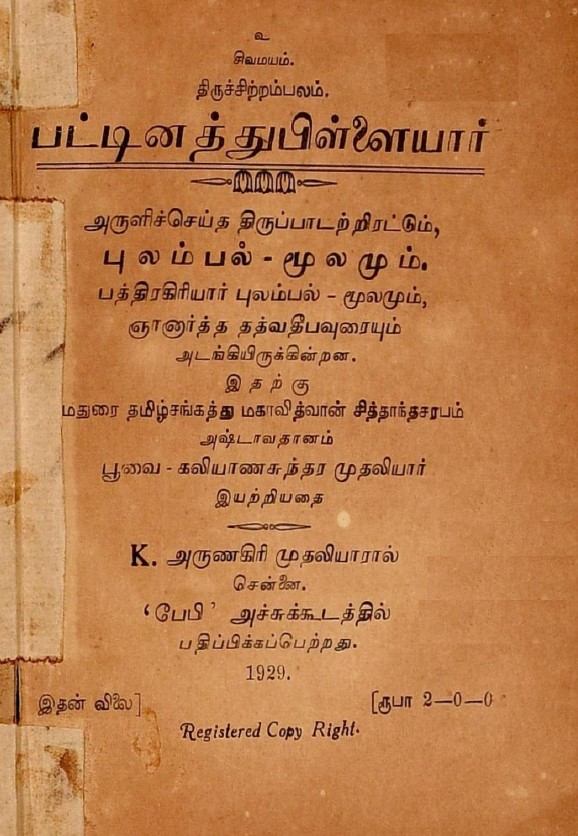 உ
சிவமயம்.
திருச்சிற்றம்பலம்.
பட்டினத்துபிள்ளையார்
அருளிச்செய்த திருப்பாடற்றிரட்டும்,
புலம்பல் - மூலமும்.
பத்திரகிரியார் புலம்பல் - மூலமும்,
ஞானார்த்த தத்வதீபவுரையும்
அடங்கியிருக்கின்றன.
இதற்கு
மதுரை தமிழ்சங்கத்து மகாவித்வான் சித்தாந்தசரபம்
அஷ்டாவதானம்
பூவை - கலியாணசுந்தர முதலியார்
இயற்றியதை
K. அருணகிரி முதலியாரால்
சென்னை.
‘பேபி’ அச்சுக்கூடத்தில்
பதிப்பிக்கப்பெற்றது.
1929.
இதன் விலை] [ரூபா 2—0—0
Registered Copy Right.